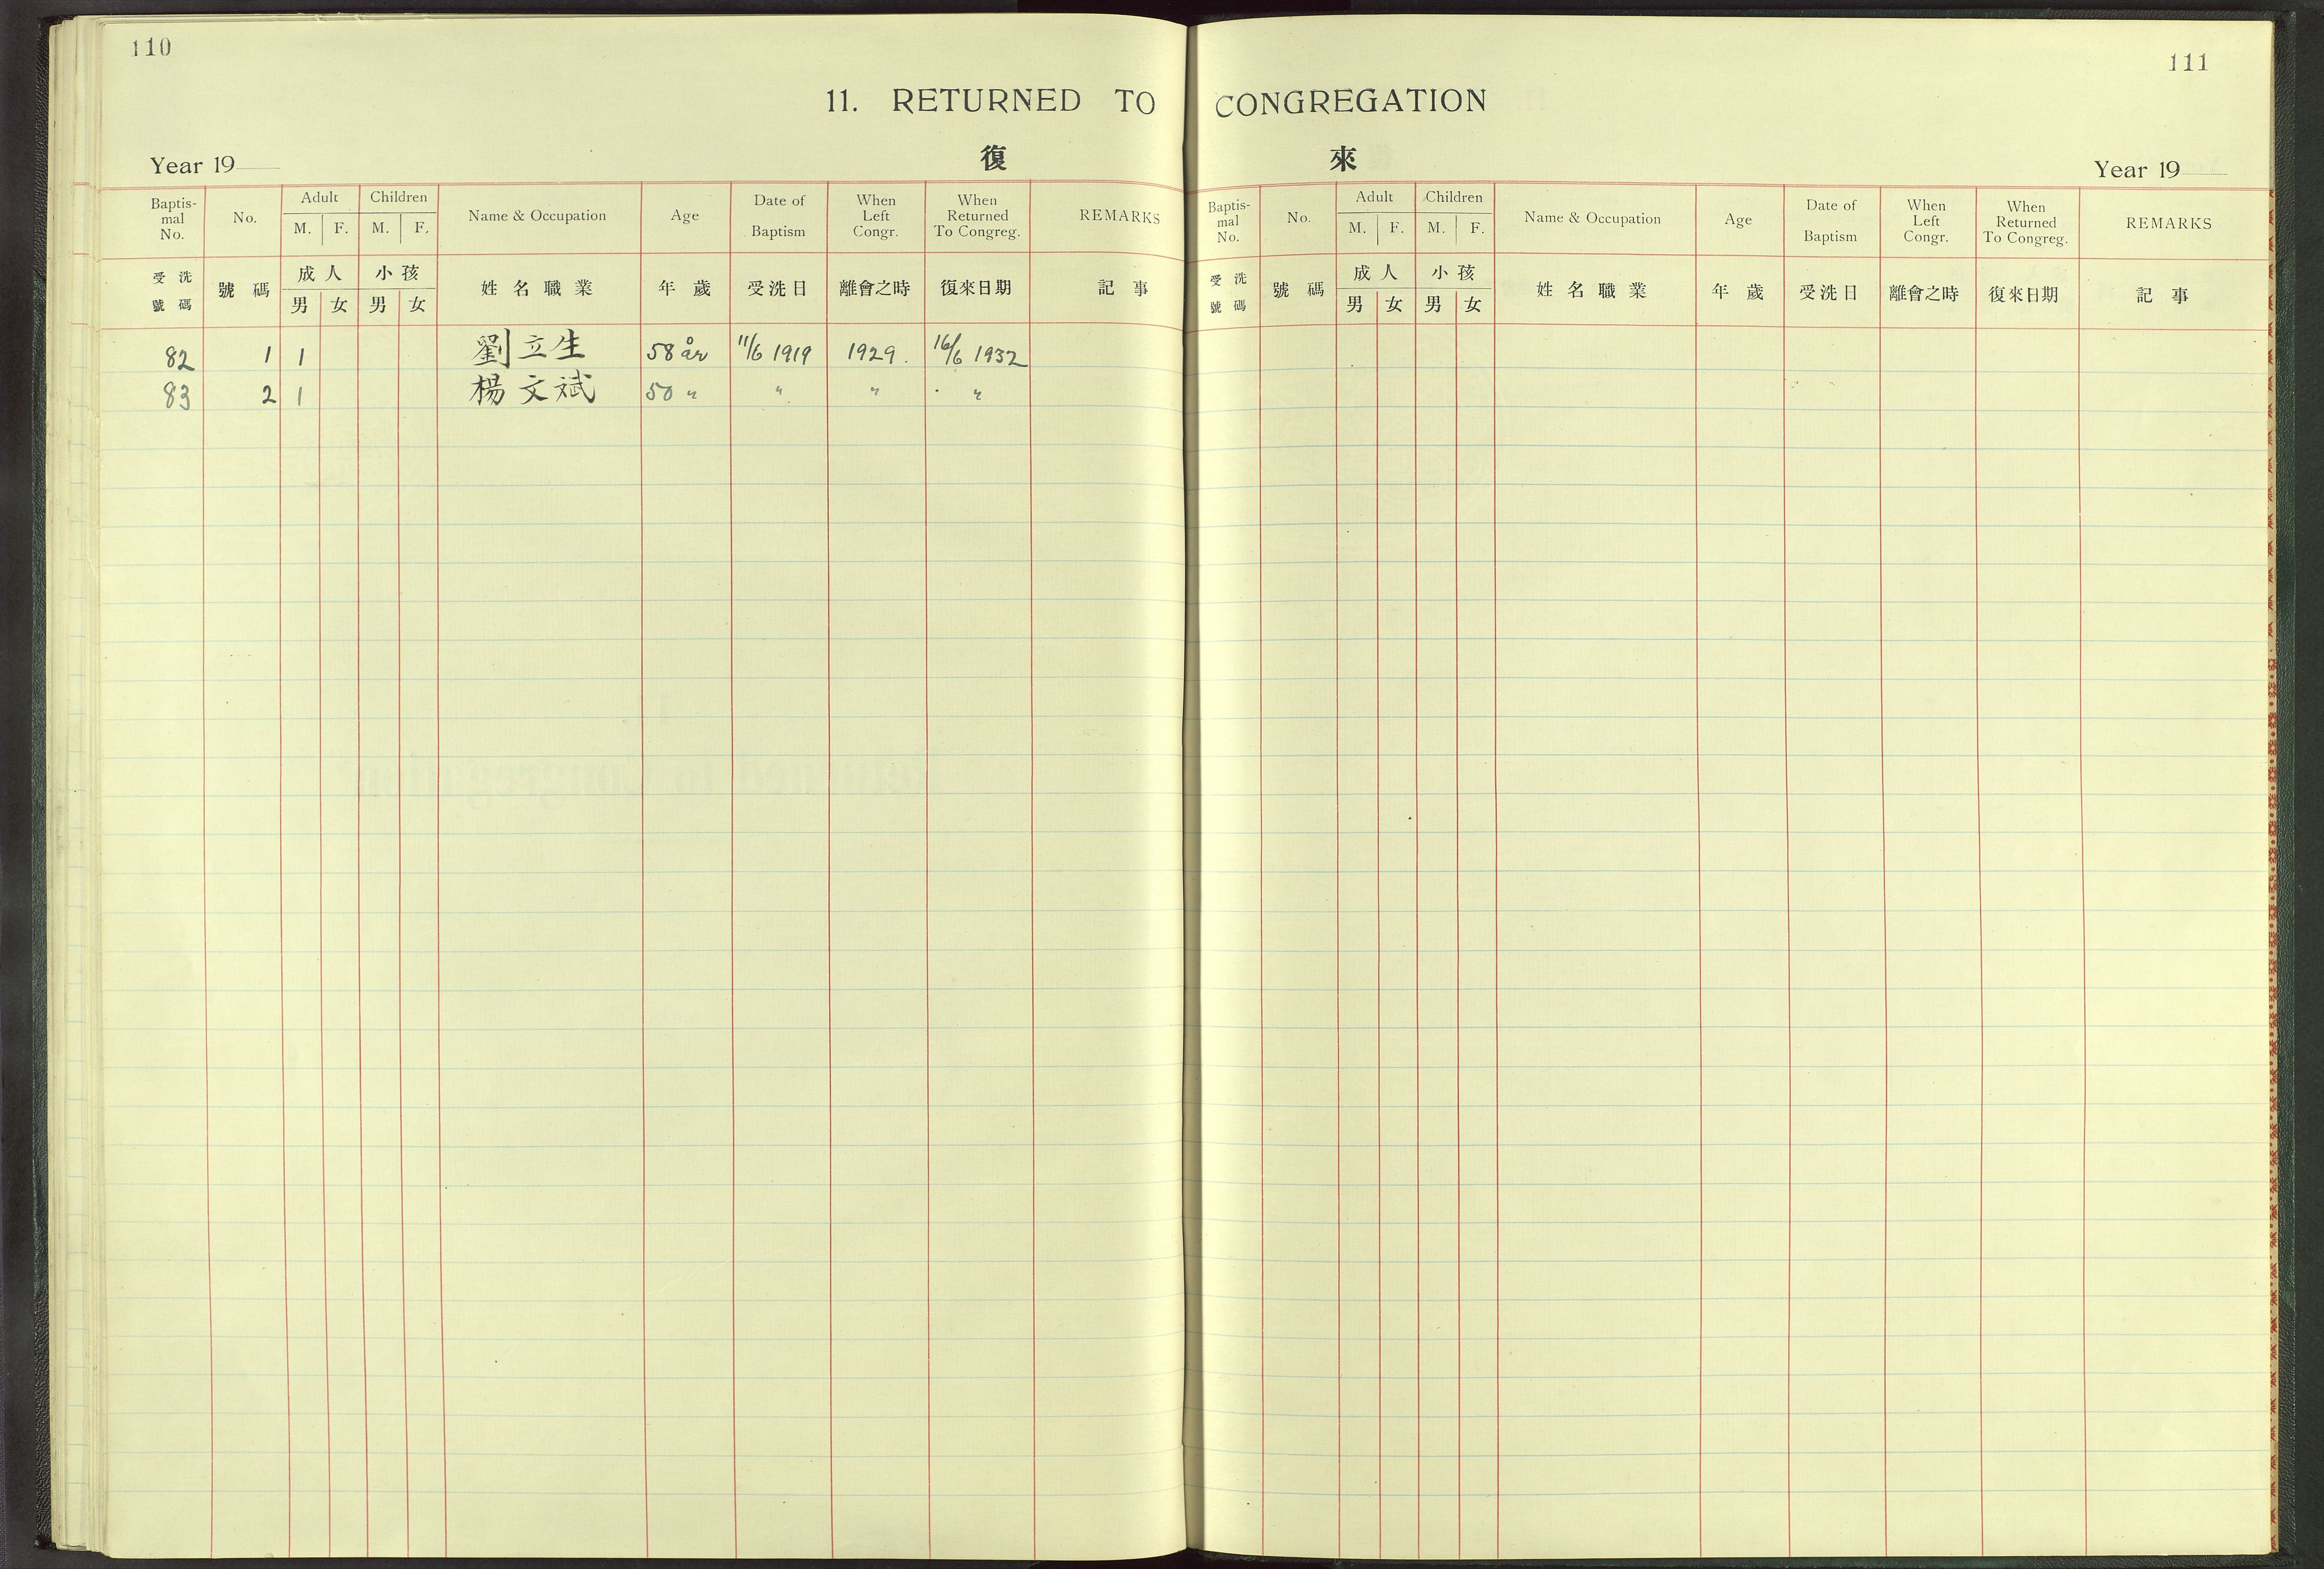 110
111
11. RETURNED TO CONGREGATION
復 來
Year 19
Year 19
Baptis-mal No. No. Adult M. F. Children M. F. Name & Occupation Age Date of Baptism When Left Congr. When Returned To Congreg. REMARKS
受洗號碼 號碼 成人 男 女 小孩 男 女 姓名職業 年歲 受洗日 離會之時 復來日期 記事
82 1 1 劉立生 58 år 11/6 1919 1929. 16/6 1932
83 2 1 楊文斌 50 " " " "
Baptis-mal No. No. Adult M. F. Children M. F. Name & Occupation Age Date of Baptism When Left Congr. When Returned To Congreg. REMARKS
受洗號碼 號碼 成人 男 女 小孩 男 女 姓名職業 年歲 受洗日 離會之時 復來日期 記事